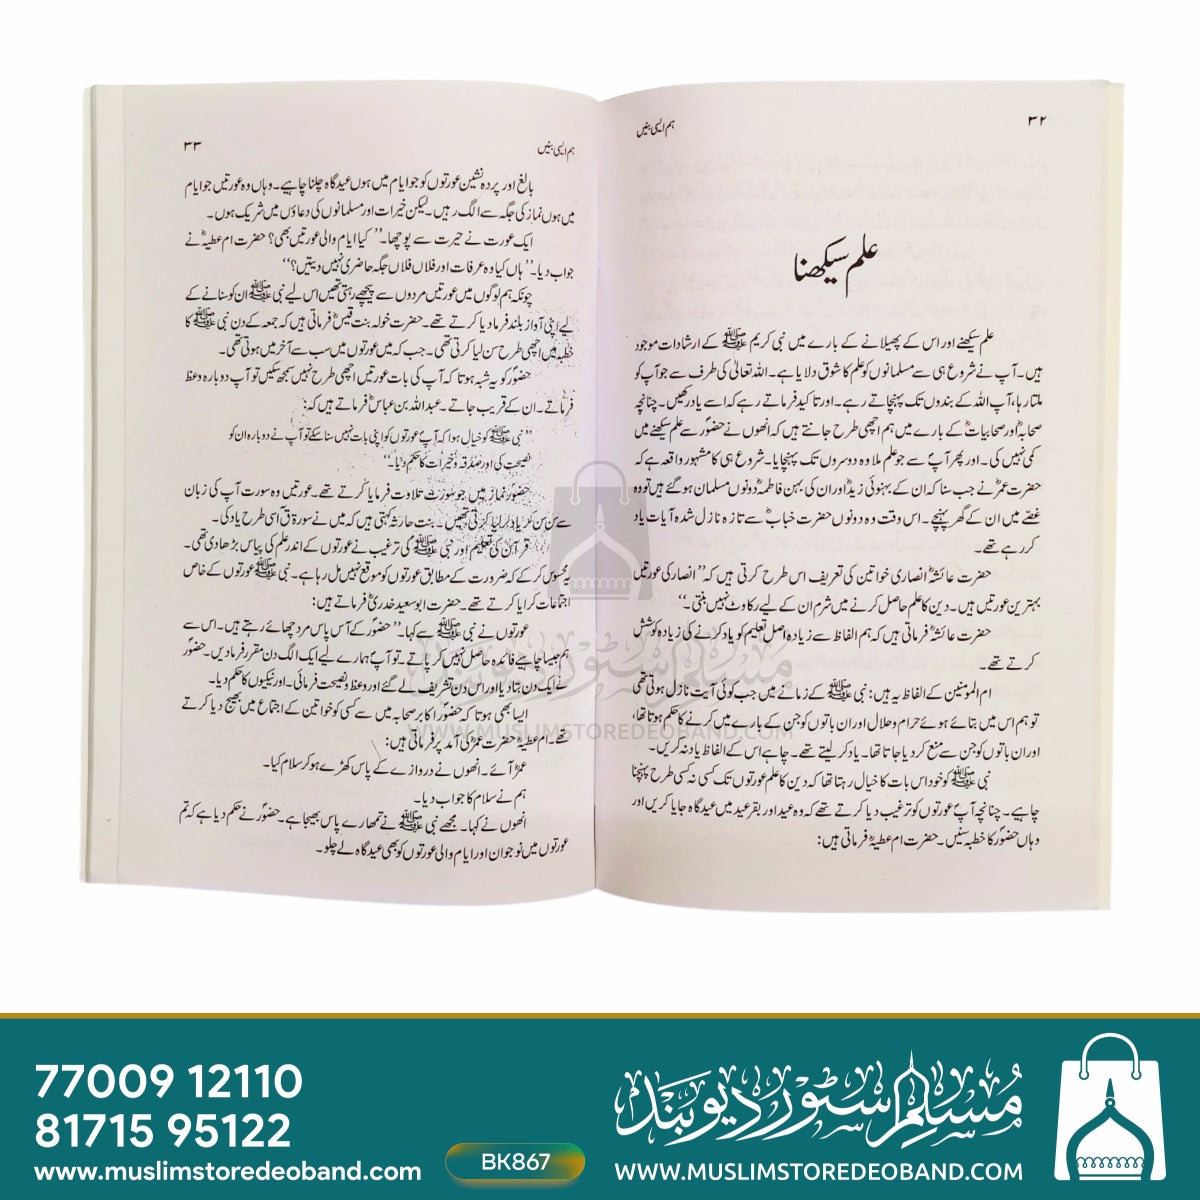 ۳۲
ہم ایسی بنیں
علم سیکھنا
علم سیکھنے اور اس کے پھیلانے کے بارے میں نبی کریم ﷺ کے ارشادات موجود
ہیں۔ آپ نے شروع ہی سے مسلمانوں کو علم کا شوق دلایا ہے۔ اللہ تعالیٰ کی طرف سے جو آپ کو
ملتا رہا، آپ اللہ کے بندوں تک پہنچاتے رہے۔ اور تاکید فرماتے رہے کہ اسے یاد رکھیں۔ چنانچہ
صحابہؓ اور صحابیاتؓ کے بارے میں ہم اچھی طرح جانتے ہیں کہ انھوں نے حضورؐ سے علم سیکھنے میں
کمی نہیں کی۔ اور پھر آپؐ سے جو علم ملا وہ دوسروں تک پہنچایا۔ شروع ہی کا مشہور واقعہ ہے کہ
حضرت عمرؓ نے جب سنا کہ ان کے بہنوئی زیدؓ اور ان کی بہن فاطمہؓ دونوں مسلمان ہو گئے ہیں تو وہ
غصّے میں ان کے گھر پہنچے۔ اس وقت وہ دونوں حضرت خبابؓ سے تازہ نازل شدہ آیات یاد
کر رہے تھے۔
حضرت عائشہؓ انصاری خواتین کی تعریف اس طرح کرتی ہیں کہ ’’انصار کی عورتیں
بہترین عورتیں ہیں۔ دین کا علم حاصل کرنے میں شرم ان کے لیے رکاوٹ نہیں بنتی۔‘‘
حضرت عائشہؓ فرماتی ہیں کہ ہم الفاظ سے زیادہ اصل تعلیم کو یاد کرنے کی زیادہ کوشش
کرتے تھے۔
ام المومنین کے الفاظ یہ ہیں: نبی ﷺ کے زمانے میں جب کوئی آیت نازل ہوتی تھی
تو ہم اس میں بتائے ہوئے حرام و حلال اور ان باتوں کو جن کے بارے میں کرنے کا حکم ہوتا تھا،
اور ان باتوں کو جن سے منع کر دیا جاتا تھا۔ یاد کر لیتے تھے۔ چاہے اس کے الفاظ یاد نہ کریں۔
نبی ﷺ کو خود اس بات کا خیال رہتا تھا کہ دین کا علم عورتوں تک کسی نہ کسی طرح پہنچنا
چاہیے۔ چنانچہ آپؐ عورتوں کو ترغیب دیا کرتے تھے کہ وہ عید اور بقرعید میں عیدگاہ جایا کریں اور
وہاں حضورؐ کا خطبہ سنیں۔ حضرت ام عطیہؓ فرماتی ہیں:
ہم ایسی بنیں
۳۳
بالغ اور پردہ نشین عورتوں کو جو ایام میں ہوں عیدگاہ چلنا چاہیے۔ وہاں وہ عورتیں جو ایام
میں ہوں نماز کی جگہ سے الگ رہیں۔ لیکن خیرات اور مسلمانوں کی دعاؤں میں شریک ہوں۔
ایک عورت نے حیرت سے پوچھا۔ ’’کیا ایام والی عورتیں بھی؟ حضرت ام عطیہؓ نے
جواب دیا۔ ’’ہاں کیا وہ عرفات اور فلاں فلاں جگہ حاضری نہیں دیتیں؟‘‘
چونکہ ہم لوگوں میں عورتیں مردوں سے پیچھے رہتی تھیں اس لیے نبی ﷺ ان کو سنانے کے
لیے اپنی آواز بلند فرما دیا کرتے تھے۔ حضرت خولہ بنت قیسؓ فرماتی ہیں کہ جمعہ کے دن نبی ﷺ کا
خطبہ میں اچھی طرح سن لیا کرتی تھی۔ جب کہ میں عورتوں میں سب سے آخر میں ہوتی تھی۔
حضورؐ کو یہ شبہ ہوتا کہ آپ کی بات عورتیں اچھی طرح نہیں سمجھ سکیں تو آپ دوبارہ وعظ
فرماتے۔ ان کے قریب جاتے۔ عبداللہ بن عباسؓ فرماتے ہیں کہ:
’’نبی ﷺ کو خیال ہوا کہ آپؐ عورتوں کو اپنی بات نہیں سنا سکے تو آپ نے دوبارہ ان کو
نصیحت کی اور صدقہ و خیرات کا حکم دیا۔‘‘
حضورؐ نماز میں جو سورت تلاوت فرمایا کرتے تھے۔ عورتیں وہ سورت آپ کی زبان
سے سن سن کر یاد کر لیا کرتی تھیں۔ بنت حارثہ کہتی ہیں کہ میں نے سورۃ ق اسی طرح یاد کی۔
قرآن کی تعلیم اور نبی ﷺ کی ترغیب نے عورتوں کے اندر علم کی پیاس بڑھا دی تھی۔
یہ محسوس کر کے کہ ضرورت کے مطابق عورتوں کو موقع نہیں مل رہا ہے۔ نبی ﷺ عورتوں کے خاص
اجتماعات کرایا کرتے تھے۔ حضرت ابو سعید خدریؓ فرماتے ہیں:
عورتوں نے نبی ﷺ سے کہا۔ ’’حضورؐ کے آس پاس مرد چھائے رہتے ہیں۔ اس سے
ہم جیسا چاہیے فائدہ حاصل نہیں کر پاتے۔ تو آپؐ ہمارے لیے ایک الگ دن مقرر فرما دیں۔ حضورؐ
نے ایک دن بتا دیا اور اس دن تشریف لے گئے اور وعظ و نصیحت فرمائی۔ اور نیکیوں کا حکم دیا۔
ایسا بھی ہوتا کہ حضورؐ اکابر صحابہ میں سے کسی کو خواتین کے اجتماع میں بھیج دیا کرتے
تھے۔ ام عطیہؓ حضرت عمرؓ کی آمد پر فرماتی ہیں:
عمرؓ آئے۔ انھوں نے دروازے کے پاس کھڑے ہو کر سلام کیا۔
ہم نے سلام کا جواب دیا۔
انھوں نے کہا۔ مجھے نبی ﷺ نے تمھارے پاس بھیجا ہے۔ حضورؐ نے حکم دیا ہے کہ تم
عورتوں میں نوجوان اور ایام والی عورتوں کو بھی عیدگاہ لے چلو۔
مسلم سٹور دیوبند
WWW.MUSLIMSTOREDEOBAND.COM
77009 12110
81715 95122
www.muslimstoredeoband.com
BK867
مسلم سٹور دیوبند
WWW.MUSLIMSTOREDEOBAND.COM